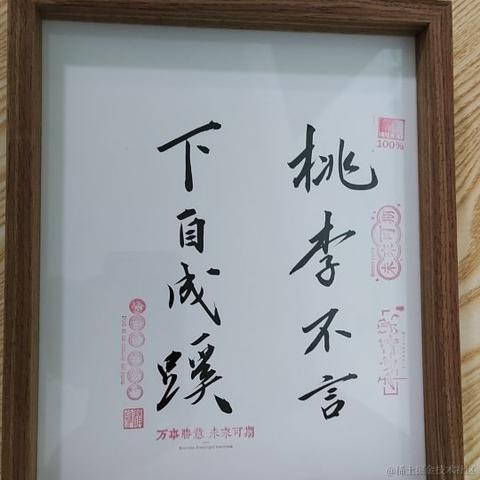 桃李不言
下自成蹊
100%
未来可期
万事勝意 未来可期
@稀土掘金技术社区